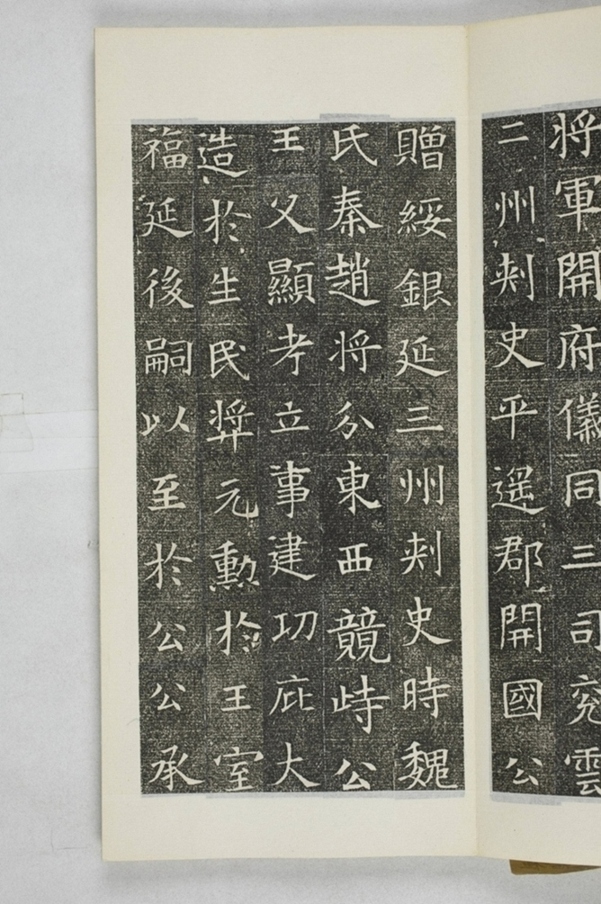 将軍開府儀同三司兖雲
二州刾史平遥郡開國公
贈綏銀延三州刾史時魏
氏秦趙将分東西競峙公
王父顯考立事建功庇大
造於生民奨元勲於王室
福延後嗣以至於公公承